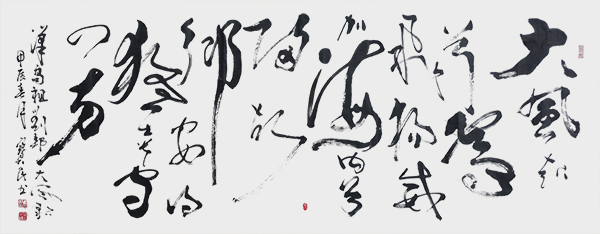 大風起
兮雲
飛揚威
加海內兮
歸故
鄉安得
猛士兮守
四方
漢高祖劉邦大風歌
甲辰春月